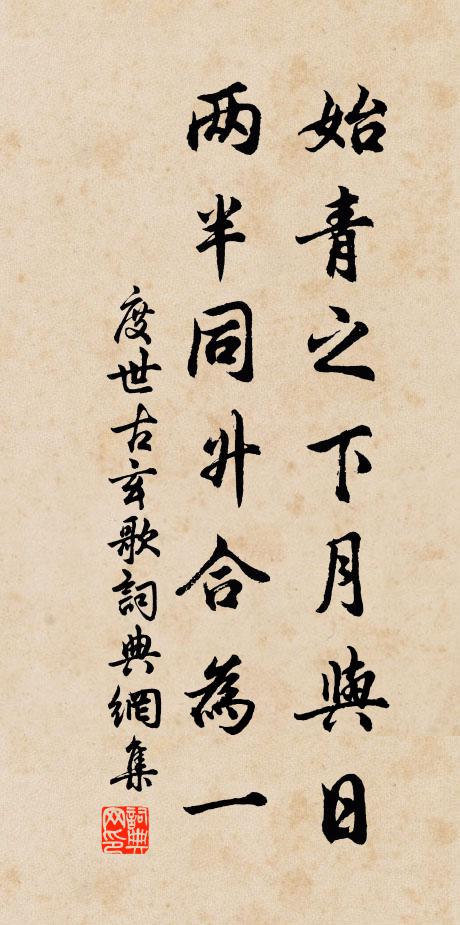 始青之下月與日
两半同升合為一
度世古玄歌詞典網集
詞典网印